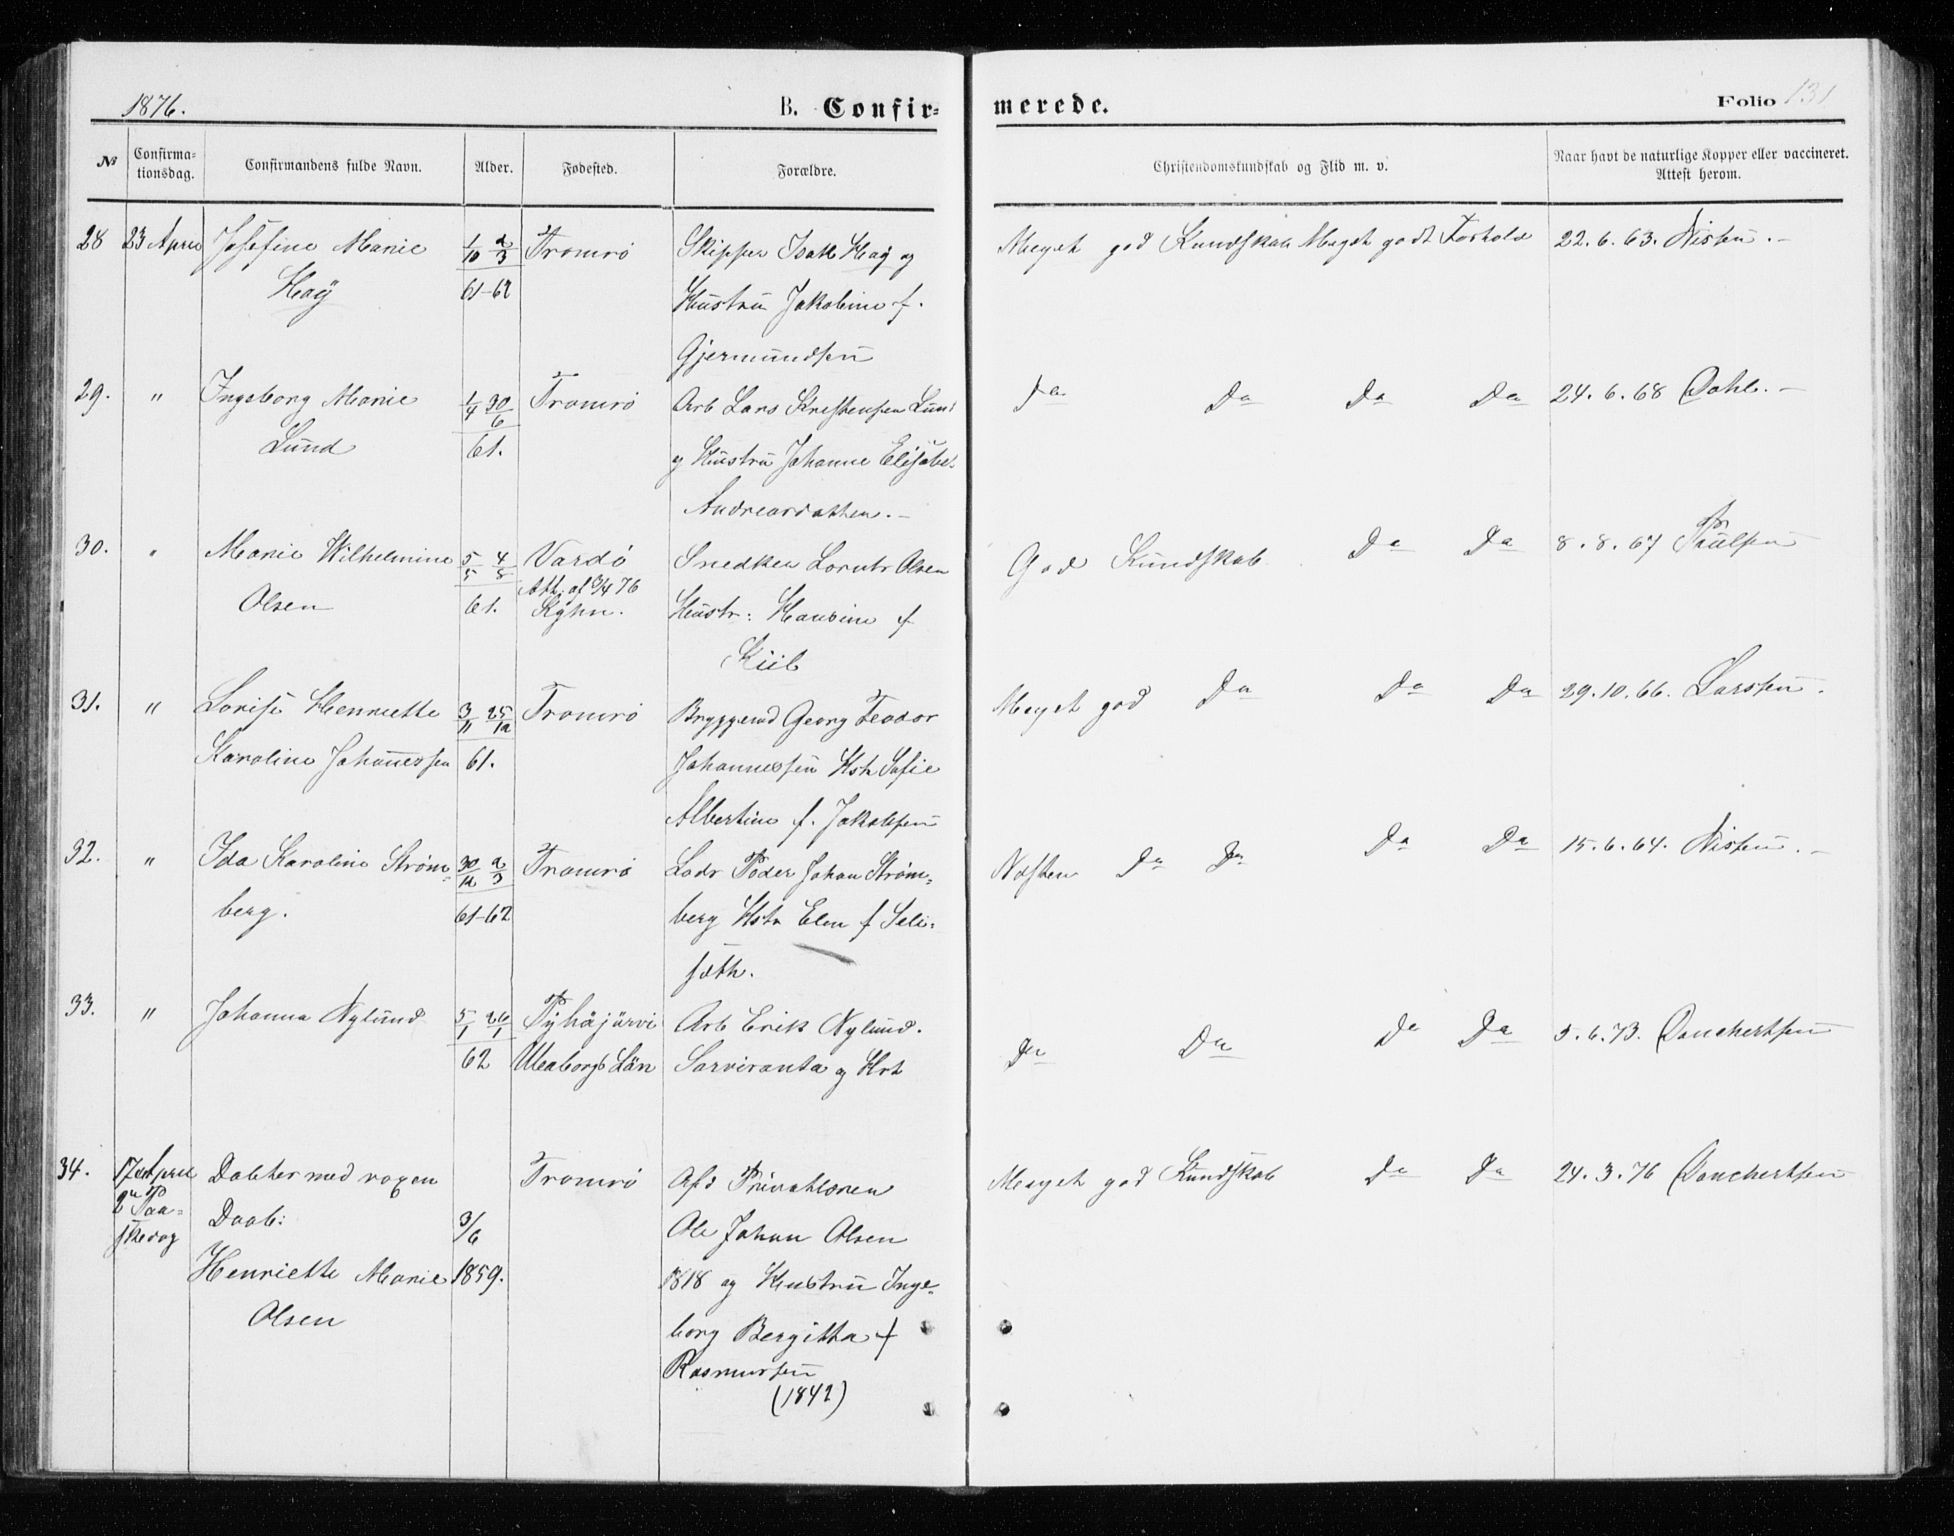 1876.
B. Confirmerede.
Folio 131
№
Confirmationsdag.
Confirmandens fulde Navn.
Alder.
Fødested.
Forældre.
Christendomskundskab og Flid m. v.
Naar havt de naturlige Kopper eller vaccineret.
Attest herom.
28 23 April Josefine Marie 1/10 2/3 Tromsø Skipper Isak Haÿ og Meget god Kundskab Meget godt Forhold 22.6.63. Nissen.
Haÿ 61-62 Hustru Jakobine f.
Gjermundsen
29. " Ingeborg Marie 1/4 30/6 Tromsø Arb Lars Kristensen Lund Do Do Do Do 24.6.68 Dahl.
Lund 61. og Hustru Johanne Elisabet
Andreasdatten.
30. " Marie Wilhelmine 5/5 4/8 Vardø Snedker Lorntz Olsen God Kundskab Do Do 8.8.67 Paulsen
Att. af 3/4 76
Olsen 61. Kÿhn. Hustr: Hansine f
Kiil
31. " Lovise Henriette 3/11 25/12 Tromsø Bryggemd Georg Teodor Meget god Do Do Do 29.10.66. Larsen.
Karoline Johannessen 61. Johannessen Hst Sofie
Albertine f. Jakobsen
32. " Ida Karoline Strøm- 30/12 2/3 Tromsø Lods Peder Johan Strøm- Næsten Do Do Do Do 15.6.64. Nissen.
berg. 61-62 berg Hstr Elen f Seli-
sæth.
33. " Johanna Nylund 5/1 26/1 Pÿhäjärvi Arb Erik Nylund. Do Do Do Do 5.6.73. Danchertsen
62 Uleaborgs Län Sarviranta og Hst
34. 17de April Døbter med voxen Tromsø Afd Privatlæren Meget god Kundskab Do Do 24.3.76 Danchertsen
2n Paa- Daab: 3/6 Ole Johan Olsen
skedag
Henriette Marie 1859. 1818 og Hustru Inge-
Olsen borg Bergitta f
Rasmussen
(1842)